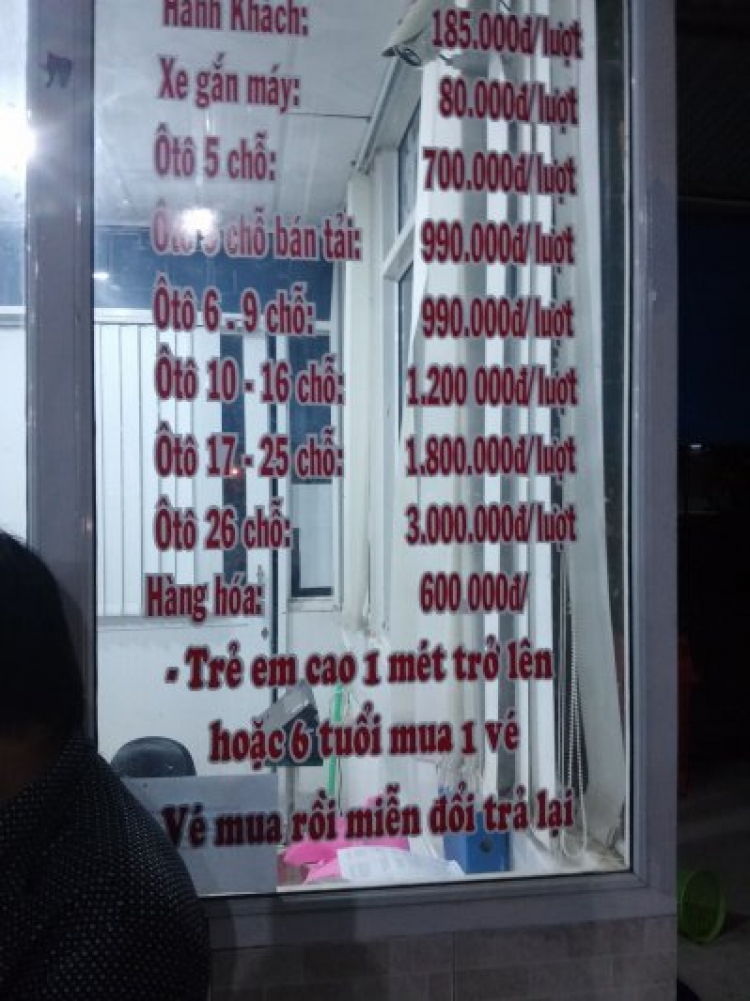 Hành Khách: 185.000đ/lượt
Xe gắn máy: 80.000đ/lượt
Ôtô 5 chỗ: 700.000đ/lượt
Ôtô chỗ bán tải: 990.000đ/lượt
Ôtô 6 - 9 chỗ: 990.000đ/lượt
Ôtô 10 - 16 chỗ: 1.200 000đ/lượt
Ôtô 17 - 25 chỗ: 1.800.000đ/lượt
Ôtô 26 chỗ: 3.000.000đ/lượt
Hàng hóa: 600 000đ/
- Trẻ em cao 1 mét trở lên
hoặc 6 tuổi mua 1 vé
Vé mua rồi miễn đổi trả lại